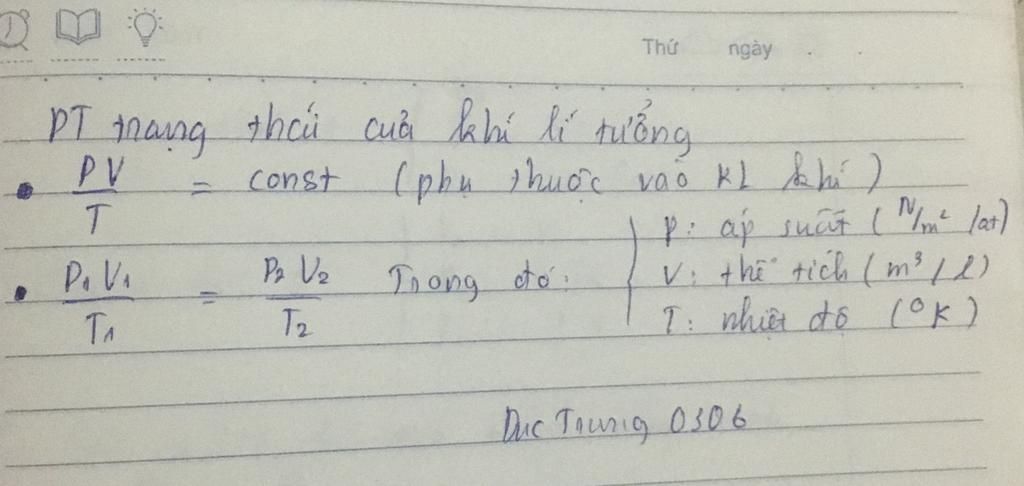 Thứ ngày
PT trạng thái của khí lí tưởng
• PV/T = const (phụ thuộc vào KL khí)
• P₁V₁/T₁ = P₂V₂/T₂ Trong đó:
P: áp suất (N/m² /at)
V: thể tích (m³/l)
T: nhiệt độ (°K)
Duc Trung 0306